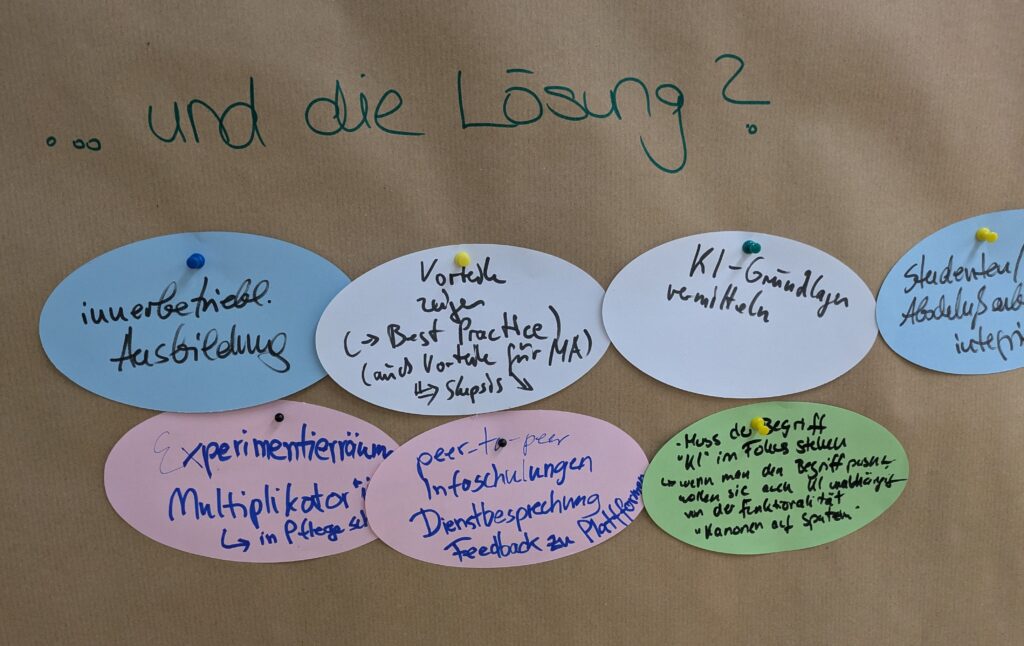 ... und die Lösung?
innerbetriebl.
Ausbildung
Vorteile
zeigen
(→ Best Practice)
(auch Vorteile für MA)
⇒ Skepsis ↘
KI-Grundlagen
vermitteln
Studenten/
Experimentierräum
Multiplikator*i
↳ in Pflege
peer-to-peer
Infoschulungen
Dienstbesprechung
Feedback zu Plattformen
- Muss der Begriff
"KI" im Fokus stehen
wenn man den Begriff pusht
wollen sie auch KI unabhängig
von der Funktionalität
"Kanonen auf Spatzen"